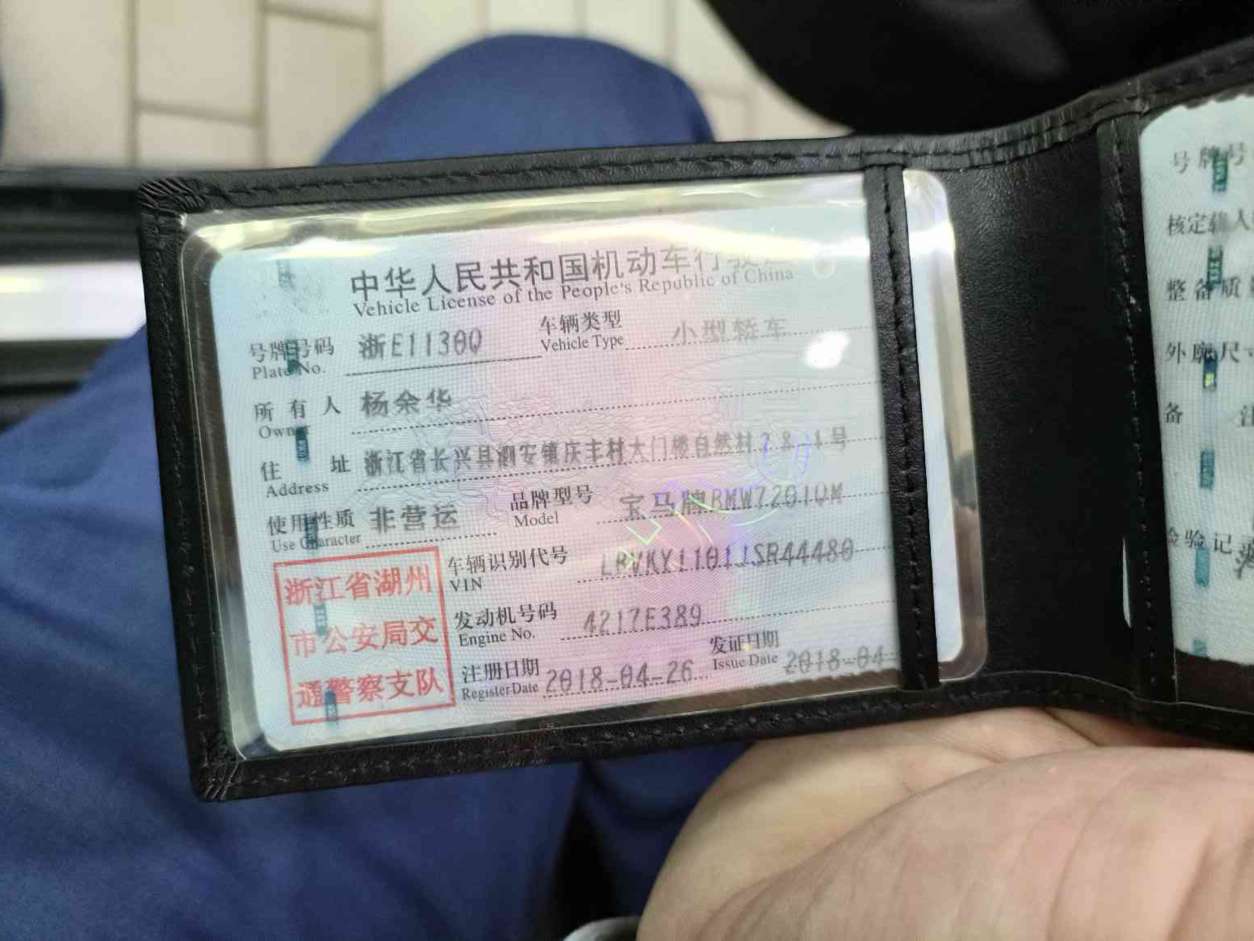 中华人民共和国机动车行驶
Vehicle License of the People's Republic of China
号牌号码 浙E1130Q 车辆类型 小型轿车
Plate No. Vehicle Type
所有人 杨余华
Owner
住址 浙江省长兴县泗安镇庆丰村大门楼自然村28-1号
Address
使用性质 非营运 品牌型号 宝马牌BMW7201QM
Use Character Model
车辆识别代号 LBVKY1101JSR44480
VIN
发动机号码 4217E389
Engine No.
注册日期 2018-04-26 发证日期 2018-04
Register Date Issue Date
浙江省湖州
市公安局交
通警察支队
号牌号
核定载人
整备质
外廓尺寸
备
检验记